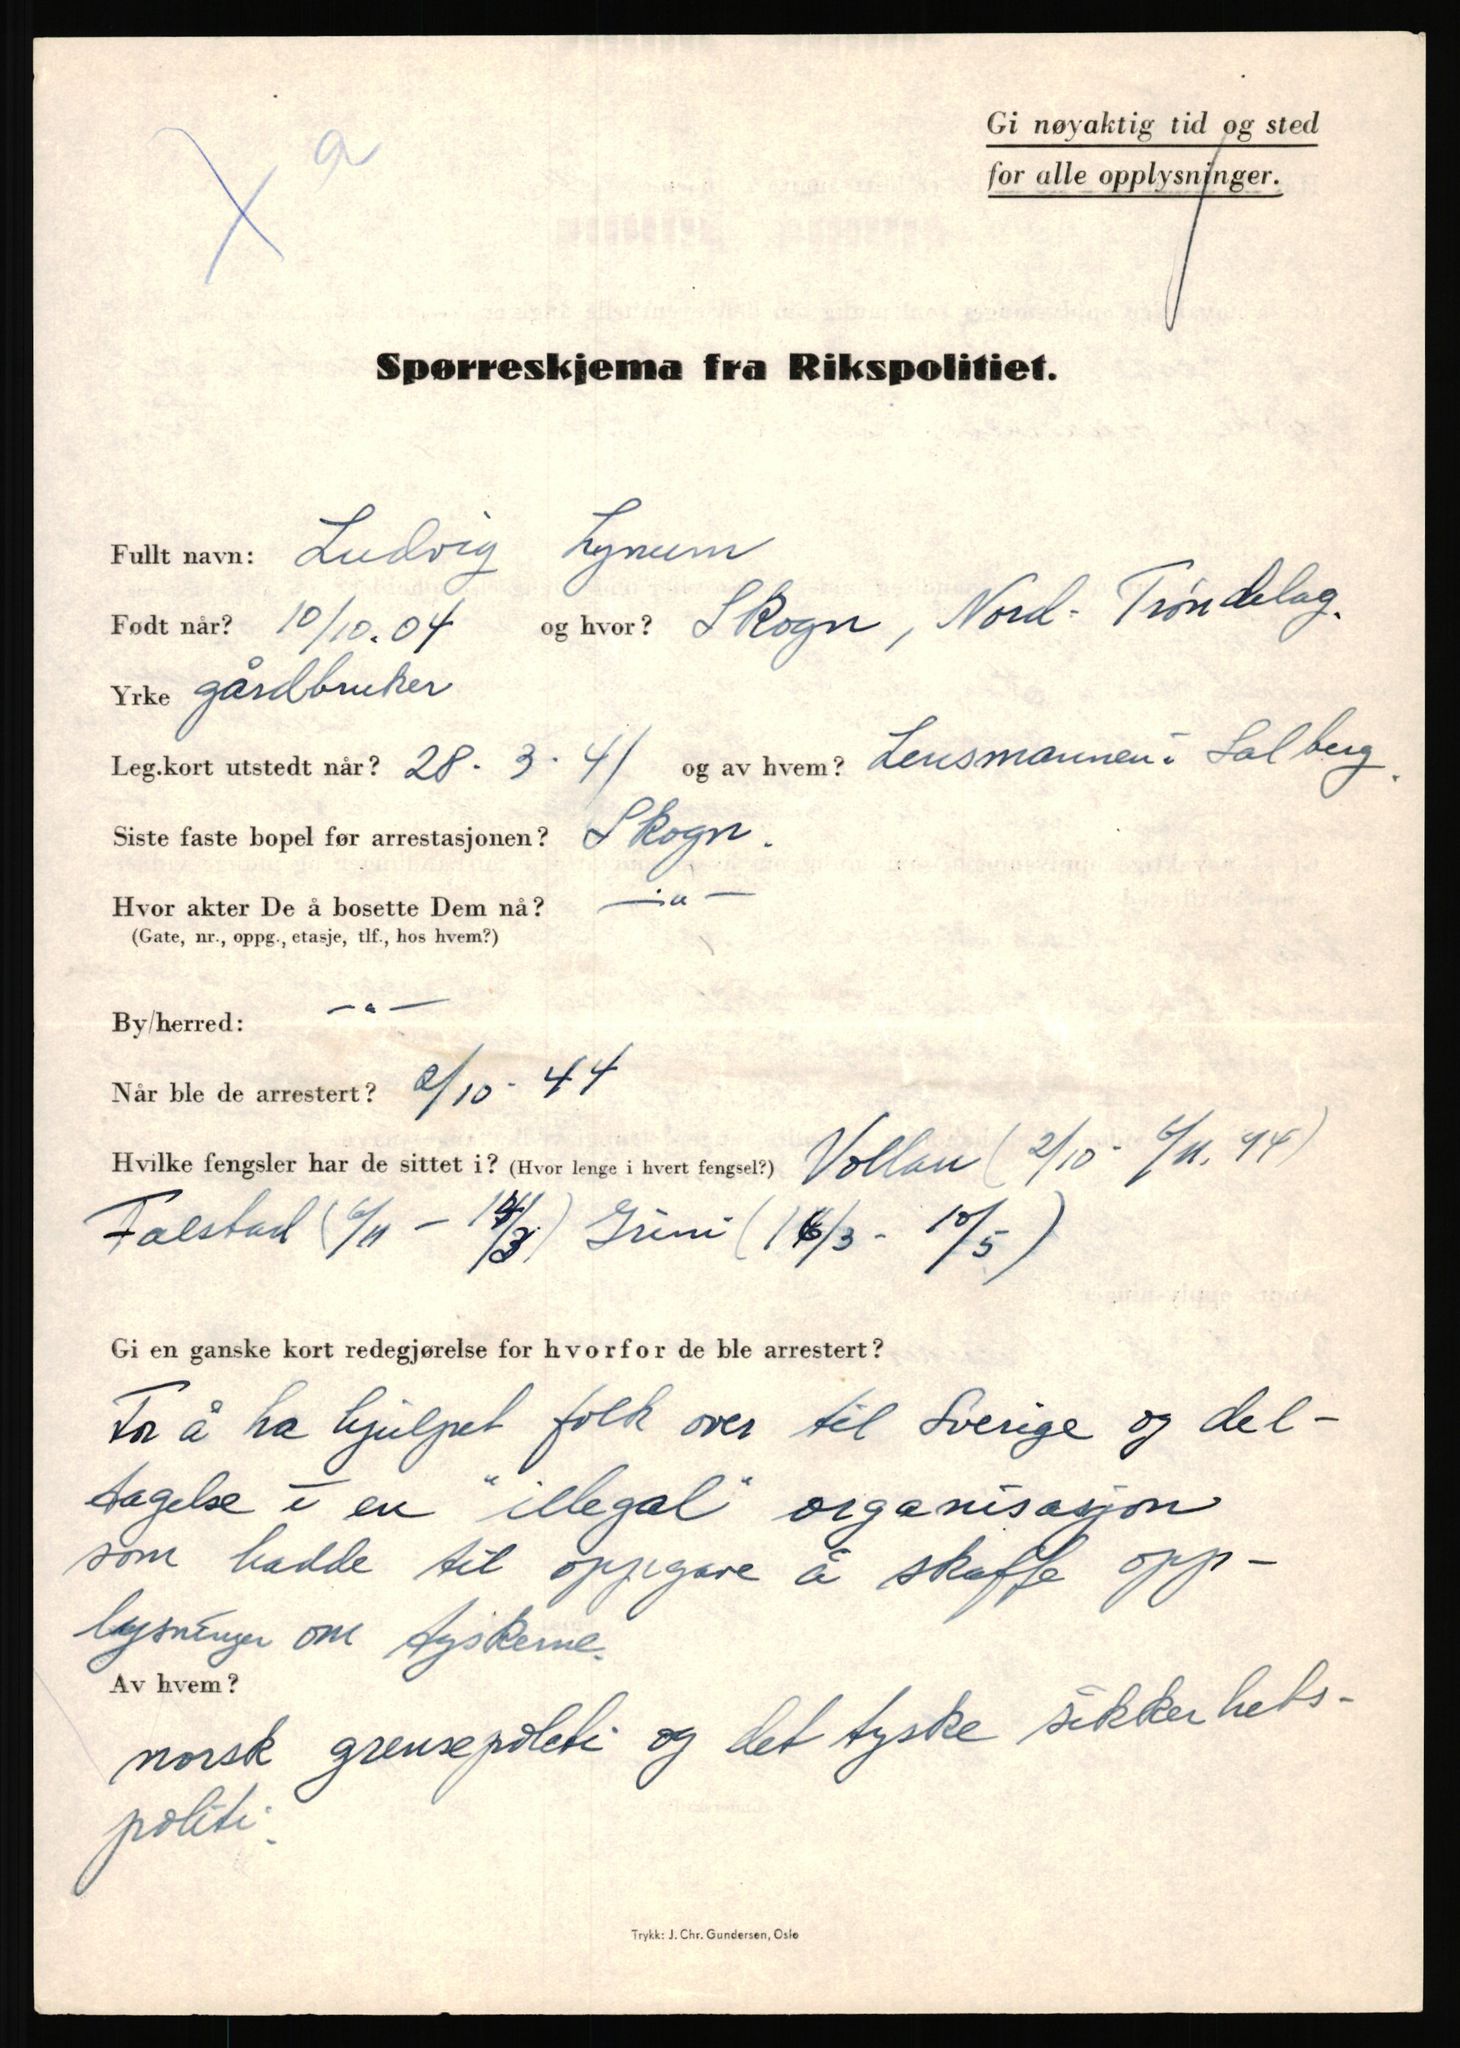 a
Gi nøyaktig tid og sted
for alle opplysninger.
Spørreskjema fra Rikspolitiet.
Fullt navn: Ludvig Lynum
Født når? 10/10.04 og hvor? Skogn, Nord-Trøndelag.
Yrke gårdbruker
Leg.kort utstedt når? 28.3.41 og av hvem? Lensmannen i Salberg.
Siste faste bopel før arrestasjonen? Skogn.
Hvor akter De å bosette Dem nå? —"—
(Gate, nr., oppg., etasje, tlf., hos hvem?)
By/herred: —"—
Når ble de arrestert? 2/10-44
Hvilke fengsler har de sittet i? (Hvor lenge i hvert fengsel?) Vollan (2/10-6/11.44)
Falstad (6/11 - 14/3) Grini (16/3 - 10/5)
Gi en ganske kort redegjørelse for hvorfor de ble arrestert?
For å ha hjulpet folk over til Sverige og del-
tagelse i en "illegal" organisasjon
som hadde til oppgave å skaffe opp-
lysninger om tyskerne.
Av hvem?
norsk grensepoliti og det tyske sikkerhets-
politi.
Trykk: J. Chr. Gundersen, Oslo